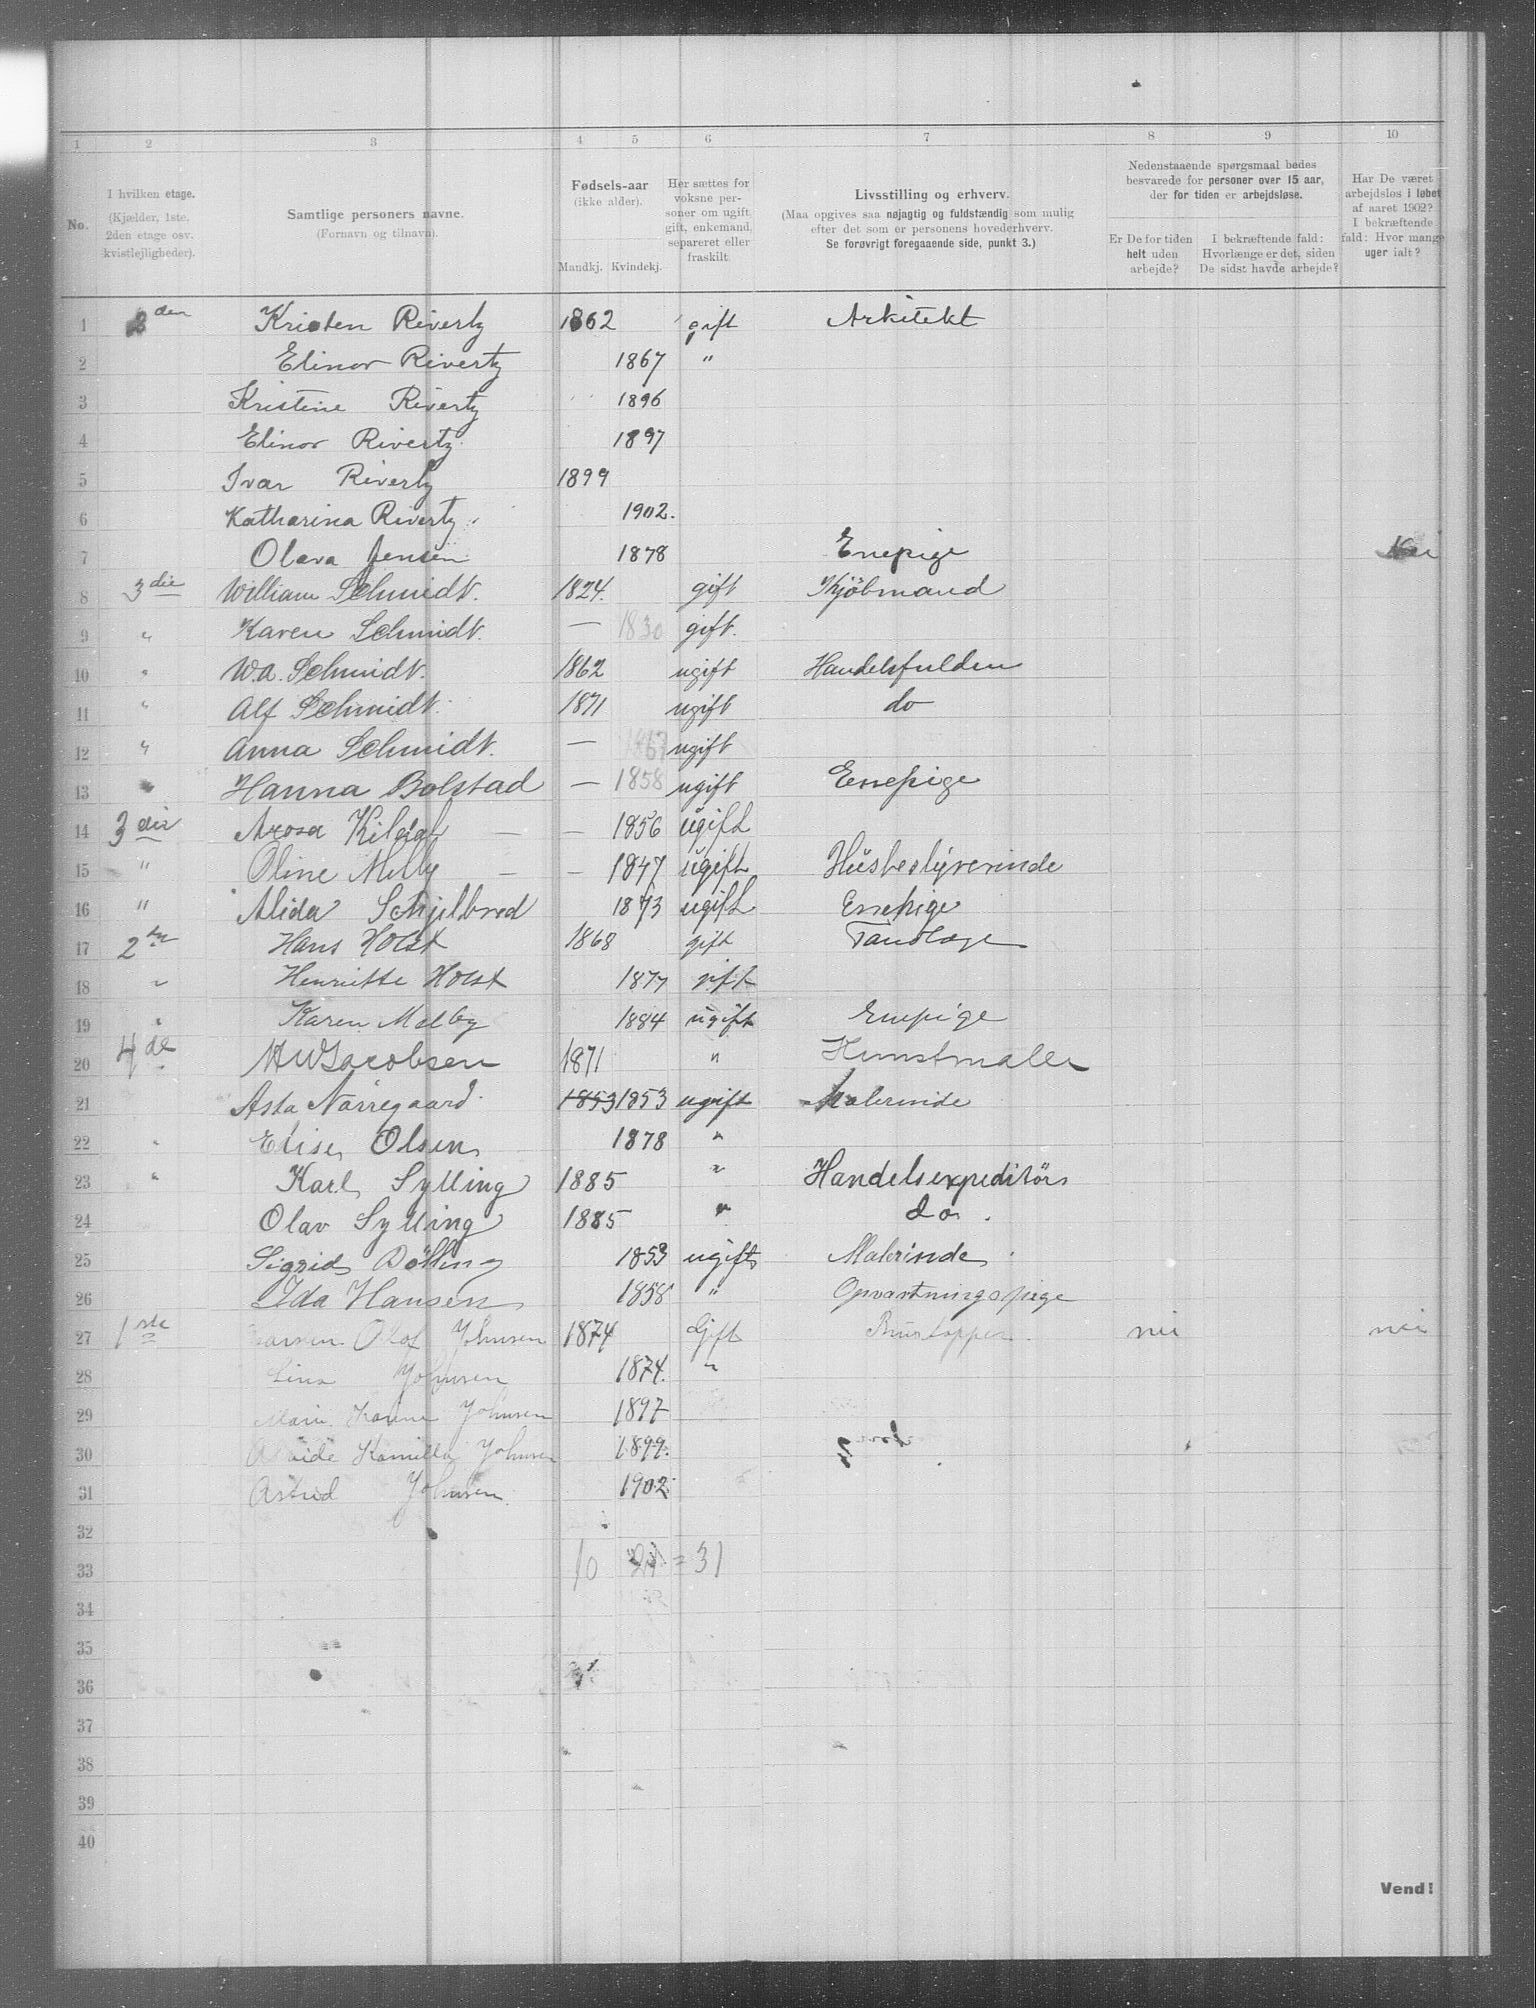 1 2 3 4 5 6 7 8 9 10
No.
I hvilken etage. (Kjælder, 1ste. 2den etage osv. kvistlejligheder).
Samtlige personers navne. (Fornavn og tilnavn).
Fødsels-aar (ikke alder). Mandkj. Kvindekj.
Her sættes for voksne personer om ugift gift, enkemand, separeret eller fraskilt.
Livsstilling og erhverv. (Maa opgives saa nøjagtig og fuldstændig som mulig efter det som er personens hovederhverv. Se forøvrigt foregaaende side, punkt 3.)
Nedenstaaende spørgsmaal bedes besvarede for personer over 15 aar, der for tiden er arbejdsløse.
Er De for tiden helt uden arbejde?
I bekræftende fald: Hvorlænge er det, siden De sidst havde arbejde?
Har De været arbejdsløs i løbet af aaret 1902? I bekræftende fald: Hvor mange uger ialt?
1 2 den Kristen Rivertz 1862 gift Arkitekt
2 Elinor Rivertz 1867 "
3 Kristine Rivertz 1896
4 Elinor Rivertz 1897
5 Ivar Rivertz 1899
6 Katharina Rivertz. 1902.
7 Olava Jensen 1878 Enepige Nei
8 3 die William Schmidt. 1824. gift Kjöbmand
9 " Karen Schmidt. — 1830 gift.
10 " W.A. Schmidt. 1862 ugift Handelsfuldm
11 " Alf Schmidt. 1871 ugift do
12 " Anna Schmidt. — ugift
13 " Hanna Bolstad — 1858 ugift Enepige
14 3 die Kildal — — 1856 ugift
15 " Oline — — 1847 ugift Husbestyrerinde
16 " Alida Schjelbred 1873 ugift Enepige
17 2 den Hans Holst 1868 gift Tandlæge
18 " Henriette Holst 1877 gift
19 " Karen Melby 1884 ugift Enepige
20 4 de Jacobsen 1871 " Kunstmaler
21 Asta Nörregaard 1853 1853 ugift Malerinde
22 " Elise Olsen 1878 "
23 " Karl Sylling 1885 " Handelsexpeditörs
24 Olav Sylling 1885 " do.
25 Sigrid Bölling 1853 ugift Malerinde
26 Ida Hansen 1858 " Opvartningspige
27 1 ste Olaf Johnsen 1874 Gift nei nei
28 Lina Johnsen 1874. "
29 Marie Johnsen 1897
30 Kamilla Johnsen 1899.
31 Astrid Johnsen. 1902.
32
33 10 21 = 31
34
35
36
37
38
39
40
Vend!